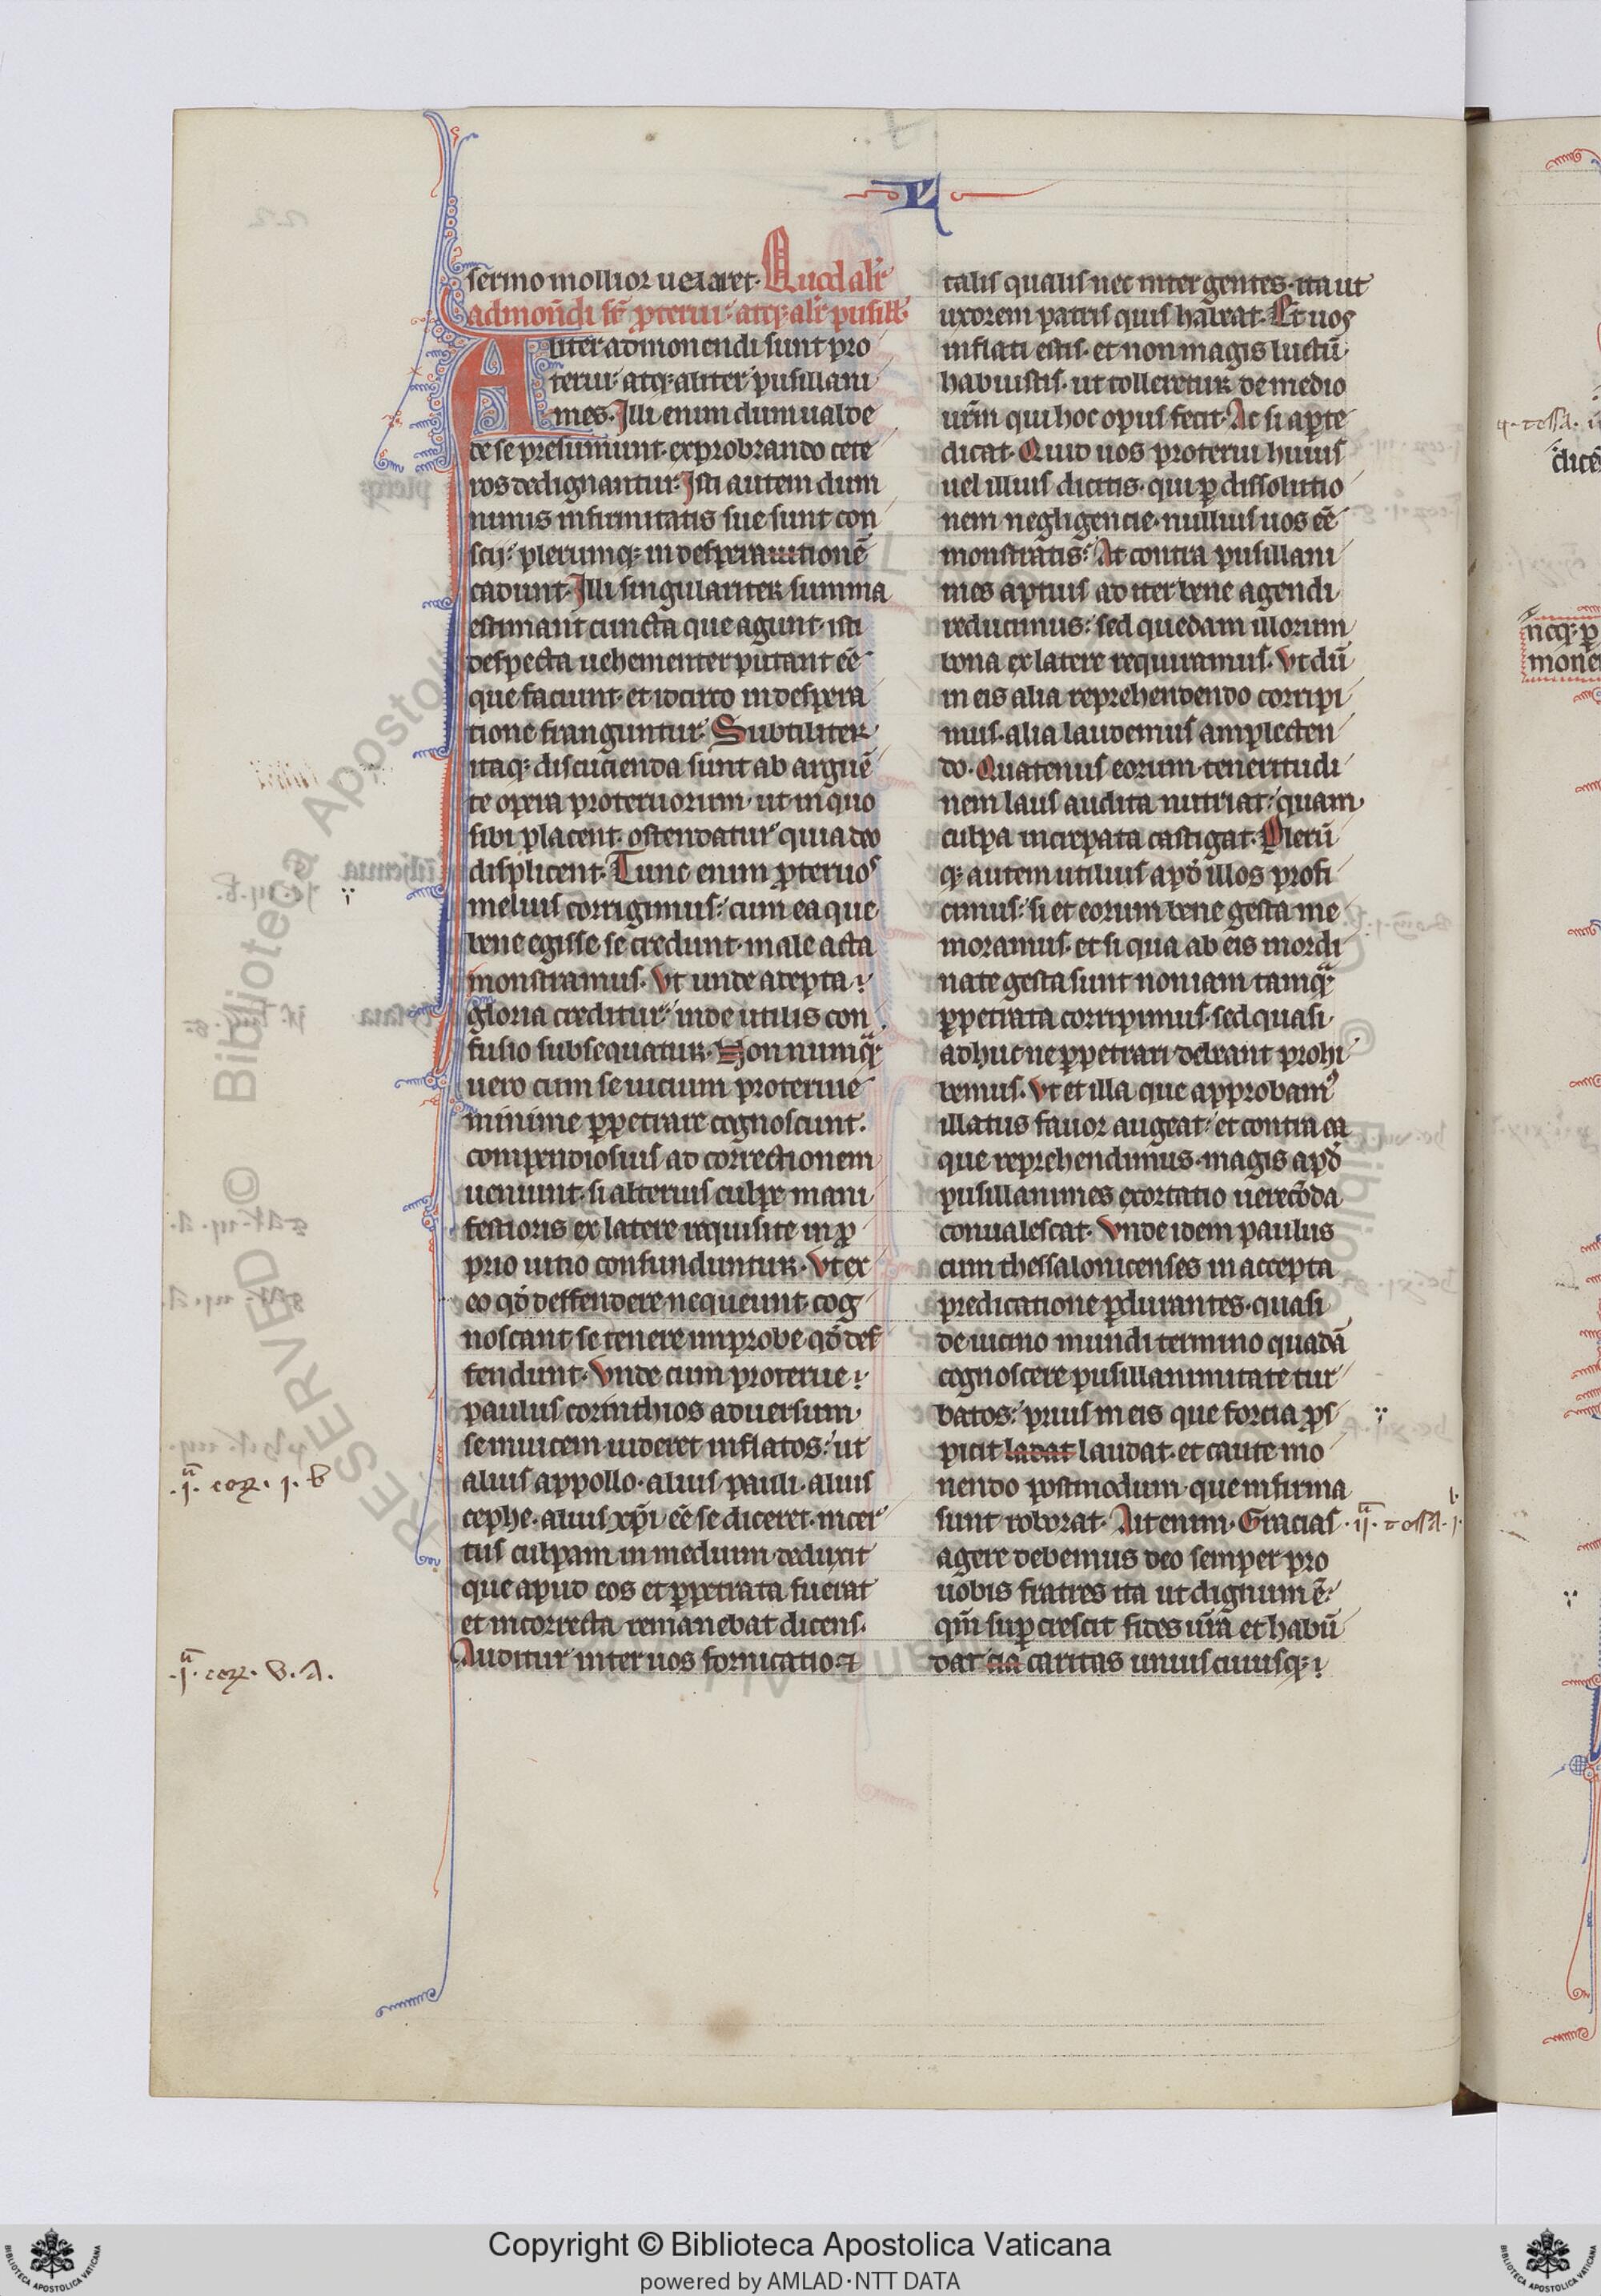 sermo mollior uexaret. Quod alr̃
admoñdi sr̃ ꝓterui: atq; alr̃ pusill̃.
Aliter admonendi sunt pro
terui: atq; aliter pusillani
mes. Illi enim dum ualde
de se presumunt. exprobrando cete
ros dedignantur. Isti autem dum
nimis infirmitatis sue sunt con
scij: plerumq; in desperationē
cadunt. Illi singulariter summa
estimant cuncta que agunt. isti
despecta uehementer putant eē
que faciunt. et idcirco in despera
tione franguntur. Subtiliter
itaq; discutienda sunt ab arguē
te opera proteruorum. ut in quo
sibi placent. ostendatur quia deo
displicent. Tunc enim ꝓteruos
melius corrigimus: cum ea que
bene egisse se credunt. male acta
monstramus. Vt unde adepta
gloria creditur: inde utilis con
fusio subsequatur. Non numq̃
uero cum se uicium proteruie
minime ꝑpetrare cognoscunt.
compendiosius ad correctionem
ueniunt. si alterius culpe mani
festioris ex latere requisite in ꝓ
prio uitio confunduntur. Vt ex
eo qđ deffendere nequeunt. cog
noscant se tenere improbe qđ def
fendunt. Vnde cum proterue
paulus corinthios aduersum
se inuicem uideret inflatos: ut
alius appollo. alius pauli. alius
cephe. alius xp̃i eē se diceret. incer
tus culpam in medium deduxit
que apud eos et ꝑpetrata fuerat
et incorrecta remanebat dicens.
Auditur inter uos fornicatio. ⁊
talis qualis nec inter gentes. ita ut
uxorem patris quis habeat. Et uos
inflati estis. et non magis luctū
habuistis. ut tolleretur de medio
ur̃m qui hoc opus fecit. Ac si aꝑte
dicat. Quid uos proterui huius
uel illius dicitis. qui ꝑ dissolutio
nem negligencie. nullius uos eē
monstratis: At contra pusillani
mes aptius ad iter bene agendi
reducimus: sed quedam illorum
bona ex latere requiramus. Vt dū
in eis alia reprehendendo corripi
mus. alia laudemus amplecten
do. Quatenus eorum teneritudi
nem laus audita nutriat: quam
culpa increpata castigat. Plerū
q; autem utilius apđ illos profi
cimus: si et eorum bene gesta me
moramus. et si qua ab eis inordi
nate gesta sunt non iam tamq̃
ꝑpetrata corripimus. sed quasi
adhuc ne ꝑpetrari debeant prohi
bemus. Vt et illa que approbam᾽
illatus fauor augeat: et contra ea
que reprehendimus. magis apđ
pusillanimes exortatio uerecōda
conualescat. Vnde idem paulus
cum thessalonicenses in accepta
predicatione ꝑdurantes. quasi
de uicino mundi termino quadā
cognoscere pusillanimitate tur
batos: prius in eis que forcia ꝓs
picit ladat laudat. et caute mo
nendo postmodum. que infirma
sunt roborat. Ait enim. Gracias
agere debemus deo semper pro
uobis fratres ita ut dignum ē:
qm̄ suꝑ crescit fides ur̃a et habū
dat caritas unius cuiusq;
.j.ª coꝝ. j. b
.j.ª coꝝ. v. A.
.ij.ª tessa. j.
dicē
neq; ꝑ
mone
Copyright © Biblioteca Apostolica Vaticana
powered by AMLAD·NTT DATA